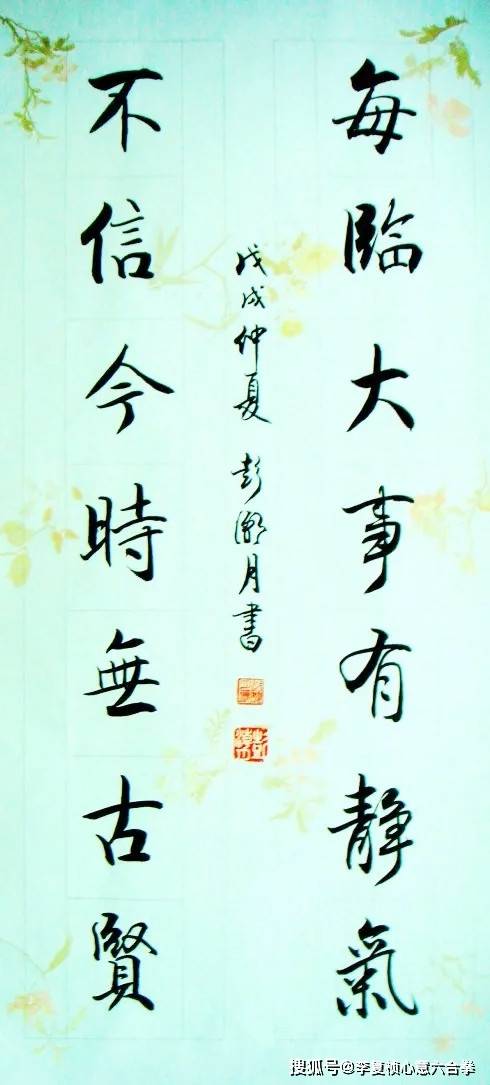 每臨大事有静氣
不信今時無古賢
戊戌仲夏 彭月書
搜狐号@李夏桢心意六合拳